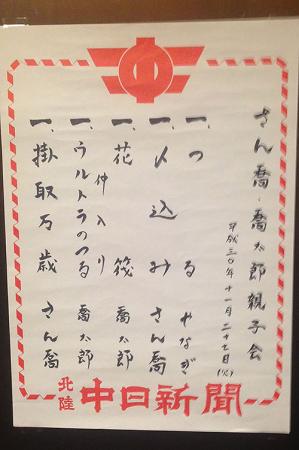 さん喬・喬太郎親子会
平成三〇年十一月二十七日(火)
一、つる やなぎ
一、人込み さん喬
一、花筏 喬太郎
仲入り
一、ウルトラのつる 喬太郎
一、掛取万歳 さん喬
北陸中日新聞